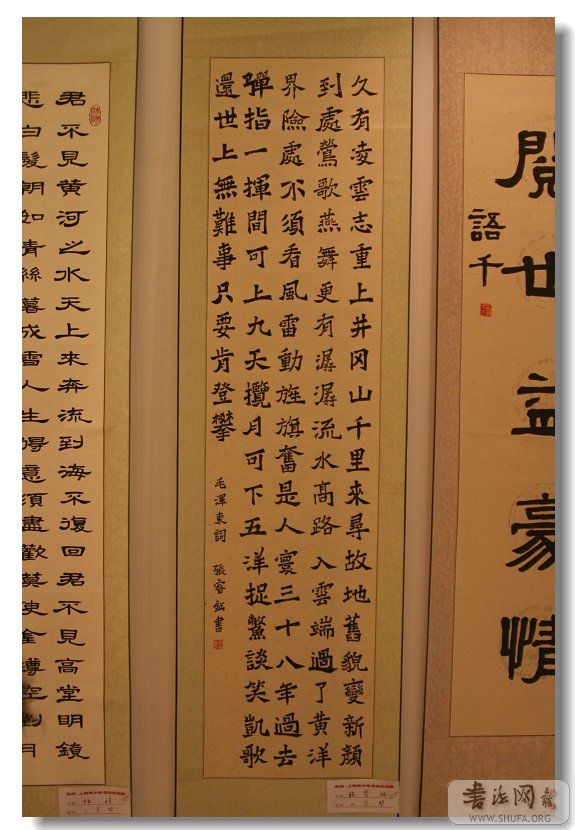 閱世益豪情
語千
久有凌雲志重上井冈山千里來尋故地舊貌變新顔
到處鶯歌燕舞更有潺潺流水高路入雲端過了黄洋
界險處不須看風雷動旌旗奮是人寰三十八年過去
彈指一揮間可上九天攬月可下五洋捉鱉談笑凱歌
還世上無難事只要肯登攀
毛澤東詞 張睿書
君不見黄河之水天上來奔流到海不復回君不見高堂明鏡
悲白髮朝如青絲暮成雪人生得意須盡歡莫使金樽空對月
书法网
WWW.SHUFA.ORG